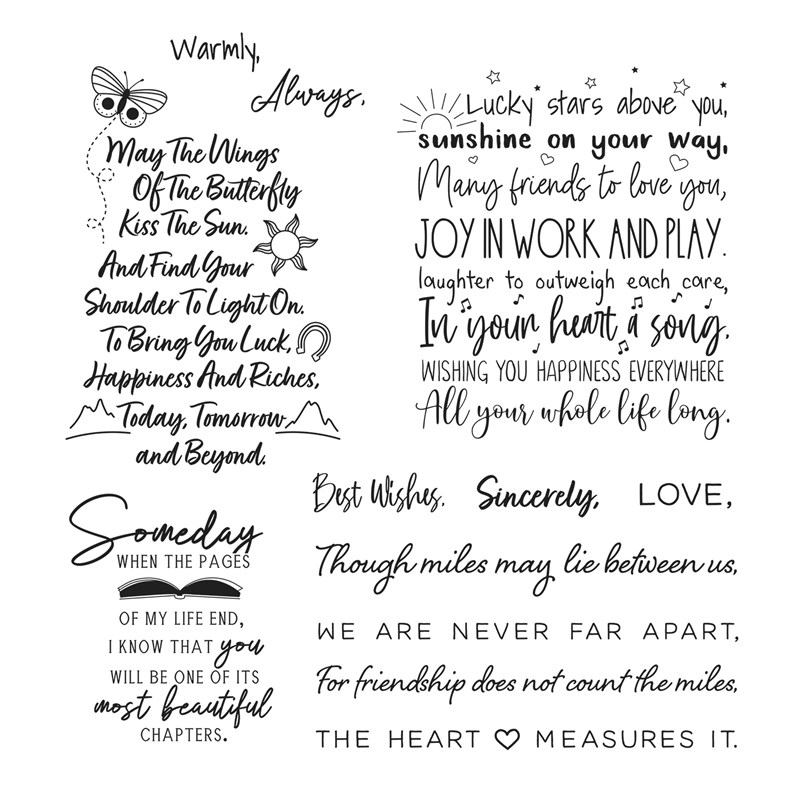 Warmly,
Always,
May The Wings
Of The Butterfly
Kiss The Sun.
And Find Your
Shoulder To Light On.
To Bring You Luck,
Happiness And Riches,
Today, Tomorrow
and Beyond.
Lucky stars above you,
sunshine on your way,
Many friends to love you,
JOY IN WORK AND PLAY.
laughter to outweigh each care,
In your heart a song.
WISHING YOU HAPPINESS EVERYWHERE
All your whole life long.
Best Wishes, Sincerely, LOVE,
Someday
WHEN THE PAGES
OF MY LIFE END,
I KNOW THAT you
WILL BE ONE OF ITS
most beautiful
CHAPTERS.
Though miles may lie between us,
WE ARE NEVER FAR APART,
For friendship does not count the miles,
THE HEART MEASURES IT.